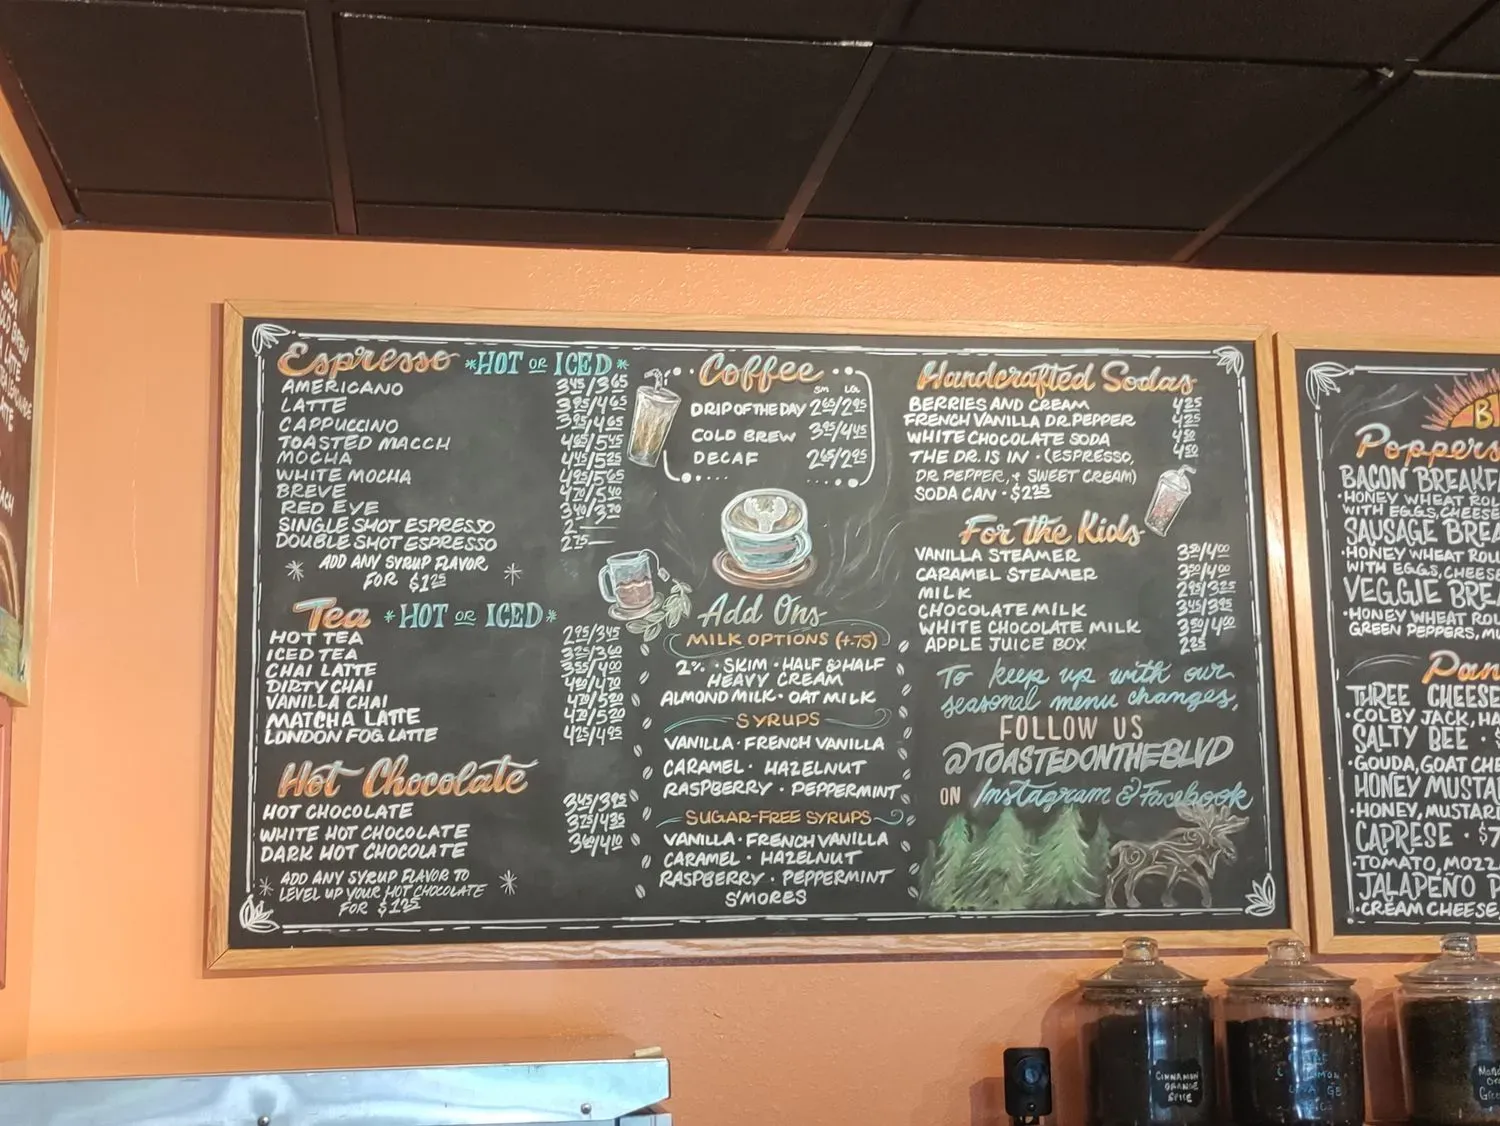 Espresso *HOT OR ICED*
AMERICANO 3.45/3.65
LATTE 3.95/4.65
CAPPUCCINO 3.95/4.65
TOASTED MACCH 4.65/5.45
MOCHA 4.45/5.25
WHITE MOCHA 4.95/5.65
BREVE 4.70/5.40
RED EYE 3.40/3.70
SINGLE SHOT ESPRESSO 2
DOUBLE SHOT ESPRESSO 2.75
ADD ANY SYRUP FLAVOR
FOR $1.25
Tea *HOT OR ICED*
HOT TEA 2.95/3.45
ICED TEA
CHAI LATTE 3.55/4.00
DIRTY CHAI
VANILLA CHAI 4.70/5.20
MATCHA LATTE 4.70/5.20
LONDON FOG LATTE 4.25/4.95
Hot Chocolate
HOT CHOCOLATE 3.45/3.95
WHITE HOT CHOCOLATE 3.75/4.35
DARK HOT CHOCOLATE
ADD ANY SYRUP FLAVOR TO
LEVEL UP YOUR HOT CHOCOLATE
FOR $1.25
Coffee
SM LG
DRIP OF THE DAY 2.65/2.95
COLD BREW 3.95/4.45
DECAF 2.65/2.95
Add Ons
MILK OPTIONS (+.75)
2% · SKIM · HALF & HALF
HEAVY CREAM
ALMOND MILK · OAT MILK
SYRUPS
VANILLA · FRENCH VANILLA
CARAMEL · HAZELNUT
RASPBERRY · PEPPERMINT
SUGAR-FREE SYRUPS
VANILLA · FRENCH VANILLA
CARAMEL · HAZELNUT
RASPBERRY · PEPPERMINT
S'MORES
Handcrafted Sodas
BERRIES AND CREAM 4.25
FRENCH VANILLA DR. PEPPER 4.25
WHITE CHOCOLATE SODA
THE DR. IS IN · (ESPRESSO, 4.50
DR PEPPER, + SWEET CREAM)
SODA CAN · $2.25
For the Kids
VANILLA STEAMER 3.50/4.00
CARAMEL STEAMER 3.50/4.00
MILK 2.95/3.25
CHOCOLATE MILK 3.45/3.95
WHITE CHOCOLATE MILK 3.50/4.00
APPLE JUICE BOX 2.25
To keep up with our
seasonal menu changes,
FOLLOW US
@TOASTEDONTHEBLVD
ON Instagram & Facebook
Poppers
BACON BREAKF
· HONEY WHEAT ROL
WITH EGGS, CHEESE
SAUSAGE BREA
· HONEY WHEAT ROLL
WITH EGGS, CHEESE
VEGGIE BREA
· HONEY WHEAT ROL
GREEN PEPPERS, MU
Pan
THREE CHEESE
· COLBY JACK, HA
SALTY BEE · $
· GOUDA, GOAT CHE
HONEY MUSTA
· HONEY, MUSTAR
CAPRESE · $7
· TOMATO, MOZZ
JALAPEÑO P
· CREAM CHEESE
SODA
LATTE
CINNAMON
ORANGE
SPICE